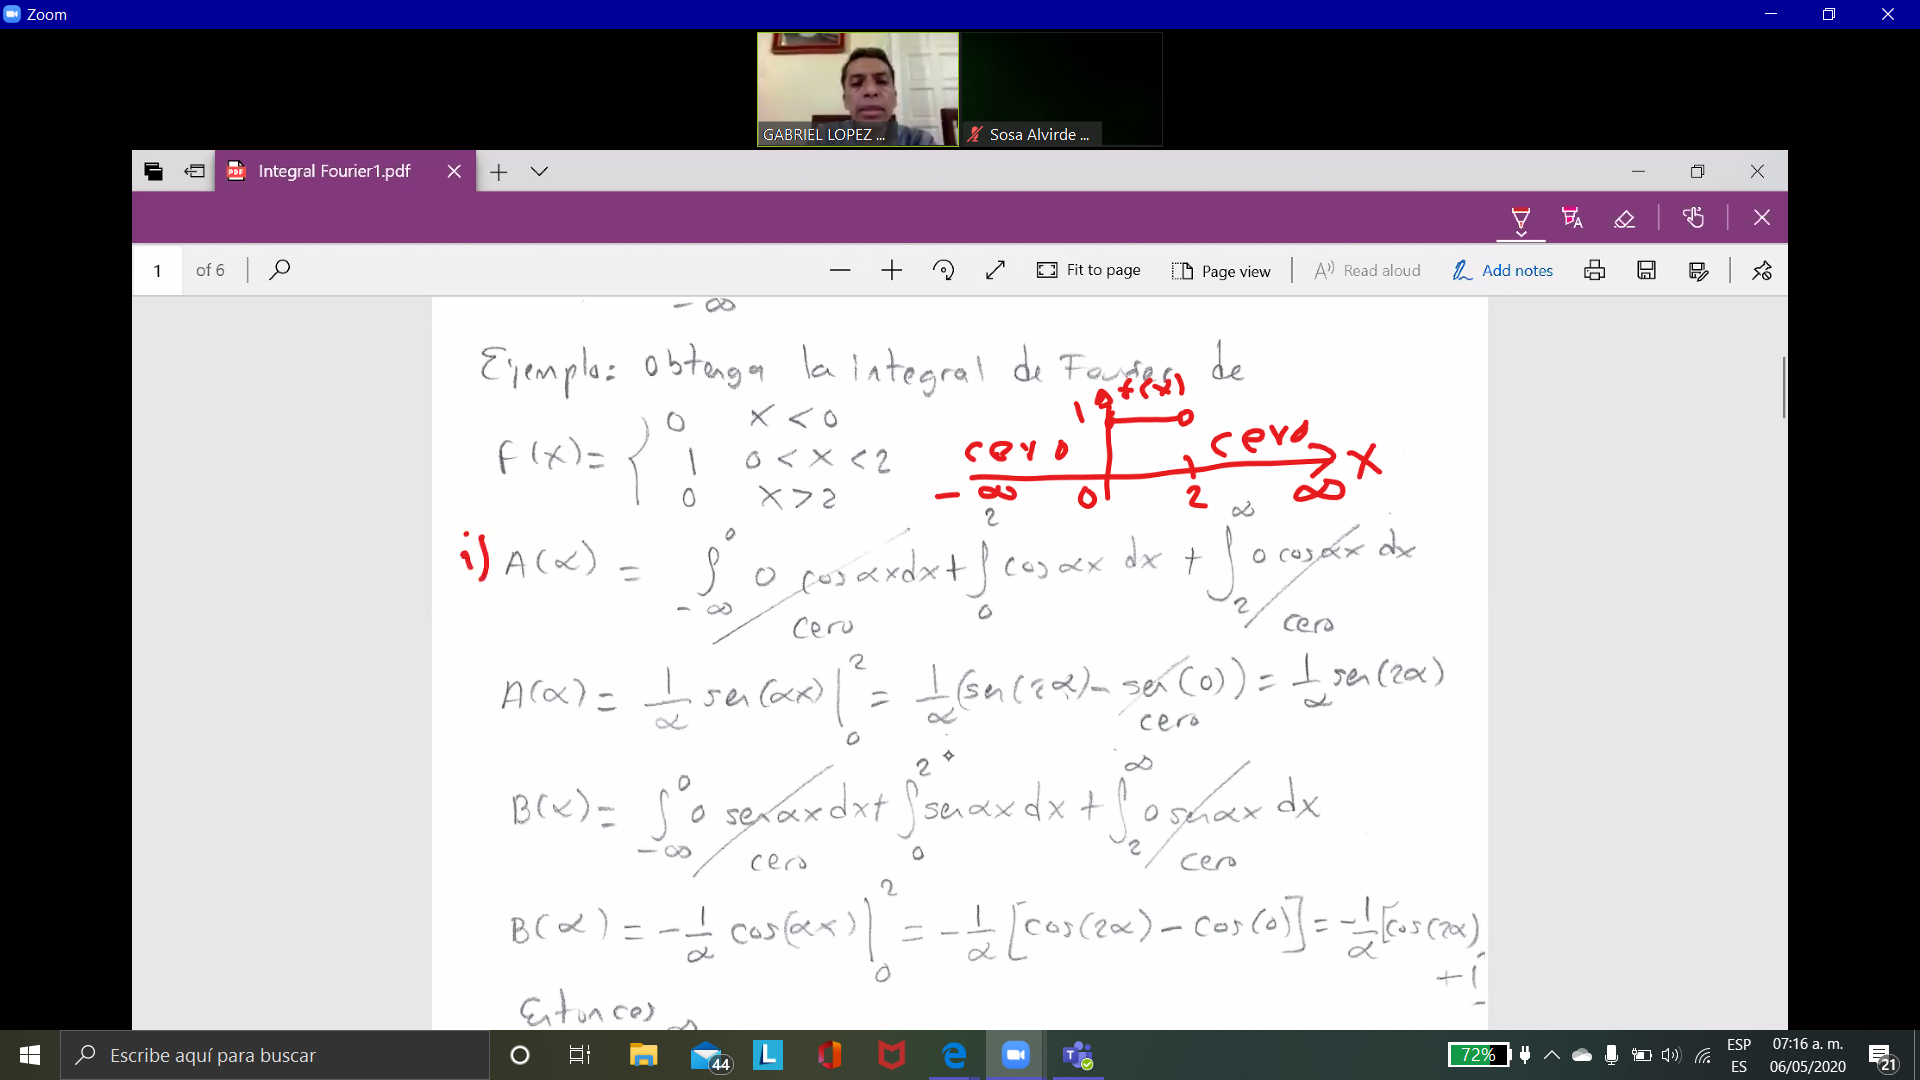 Zoom
GABRIEL LOPEZ ...
Sosa Alvirde ...
Integral Fourier1.pdf
1 of 6
Fit to page
Page view
Read aloud
Add notes
- ∞
Ejemplo: Obtenga la integral de Fourier de
f(x)= { 0 x < 0
1 0 < x < 2
0 x > 2
1 f(x)
cero cero x
- ∞ 0 2 ∞
i) A(α) = ∫_{-∞}^{0} 0 cos αx dx + ∫_{0}^{2} cos αx dx + ∫_{2}^{∞} 0 cos αx dx
cero cero
A(α) = 1/α sen(αx) |_{0}^{2} = 1/α (sen(2α) - sen(0)) = 1/α sen(2α)
cero
B(α) = ∫_{-∞}^{0} 0 sen αx dx + ∫_{0}^{2} sen αx dx + ∫_{2}^{∞} 0 sen αx dx
cero cero
B(α) = -1/α cos(αx) |_{0}^{2} = -1/α [cos(2α) - cos(0)] = -1/α [cos(2α)
+1
Entonces
∞
Escribe aquí para buscar
44
L
72%
ESP
ES
07:16 a. m.
06/05/2020
21